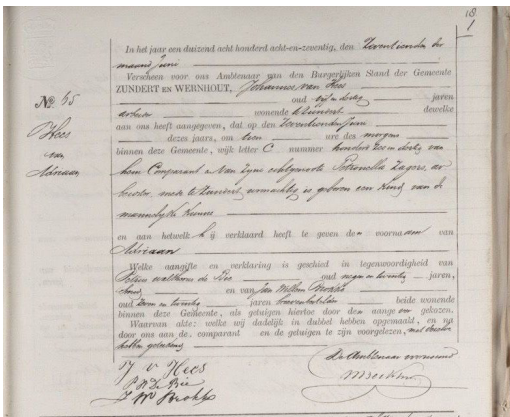 18.
1
In het jaar een duizend acht honderd acht-en-zeventig, den Zeventienden der
maand Juni
Verscheen voor ons Ambtenaar van den Burgerlijken Stand der Gemeente
ZUNDERT EN WERNHOUT, Johannes van Hees
oud vijf en dertig jaren
arbeider wonende te Zundert dewelke
aan ons heeft aangegeven, dat op den Zeventienden Juni
dezes jaars, om ure des morgens
binnen deze Gemeente, wijk letter C. nummer honderd zes en dertig van
hem Comparant en van zijne echtgenoote Petronella Zagers, ar
beidster, mede te Zundert woonachtig is geboren een kind van de
mannelijke kunne
en aan hetwelk hij verklaard heeft te geven den voornaam van
Adriaan
Welke aangifte en verklaring is geschied in tegenwoordigheid van
de Bie oud negen en twintig jaren,
en van Jan Willem
oud en twintig jaren beide wonende
binnen deze Gemeente, als getuigen hiertoe door den aangever gekozen.
Waarvan akte: welke wij dadelijk in dubbel hebben opgemaakt, en op
door ons aan de comparant en de getuigen te zijn voorgelezen, met dezelve
hebben geteekend
No. 45
Hees
van
Adriaan,
J v Hees
P W De Bie
J W
De Ambtenaar voornoemd